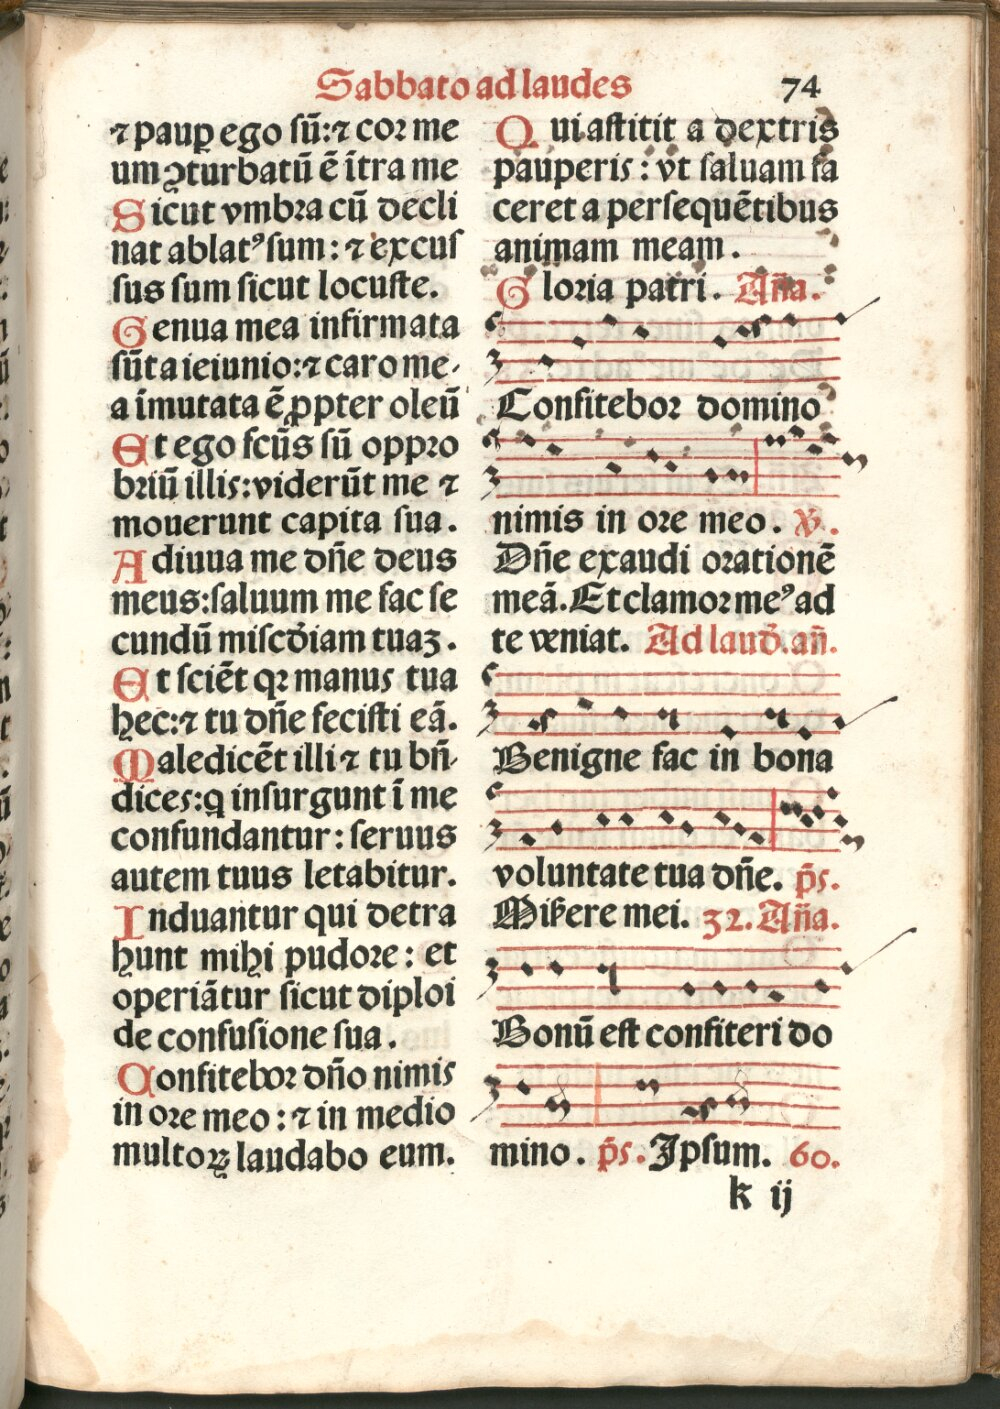 Sabbato ad laudes 74
⁊ paup̲ ego sū:⁊ coꝛ me
um ꝯturbatū ē ītra me
Sicut vmbꝛa cū decli
nat ablatꝰ sum: ⁊ excus
sus sum sicut locuste.
Genua mea infirmata
sūt a ieiunio:⁊ caro me-
a īmutata ē ꝓpter oleū
Et ego fcūs sū oppꝛo
bꝛiū illis:viderūt me ⁊
mouerunt capita sua.
Adiuua me dn̄e deus
meus:saluum me fac se
cundū misc̄diam tuaꝫ.
Et sciēt qꝛ manus tua
hec:⁊ tu dn̄e fecisti eā.
Maledicēt illi ⁊ tu bn̄-
dices:q̄ insurgunt ī me
confundantur: seruus
autem tuus letabitur.
Induantur qui detra
hunt mihi pudoꝛe: et
operiātur sicut diploi
de confusione sua.
Confiteboꝛ dn̄o nimis
in oꝛe meo: ⁊ in medio
multoꝝ laudabo eum.
Qui astitit a dextris
pauperis: vt saluam fa
ceret a persequētibus
animam meam.
Gloꝛia patri. An̄a.
Confiteboꝛ domino
nimis in oꝛe meo. ℣.
Dn̄e exaudi oꝛationē
meā. Et clamoꝛ meꝰ ad
te veniat. Ad laud̄. an̄.
Benigne fac in bona
voluntate tua dn̄e. p̄s.
Mis̄ere mei. 32. An̄a.
Bonū est confiteri do
mino. p̄s. Ipsum. 60.
k ij